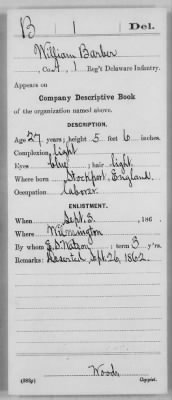 B 1 Del.
William Barber
, Co. , 1 Reg't Delaware Infantry.
Appears on
Company Descriptive Book
of the organization named above.
DESCRIPTION.
Age 27 years; height 5 feet 6 inches.
Complexion light
Eyes blue; hair light
Where born Stockport, England.
Occupation Laborer
ENLISTMENT.
When Sept. 3, 186 .
Where Wilmington
By whom ; term 3 y'rs.
Remarks: Deserted, Sept. 26, 1862.
Woods
Copyist.